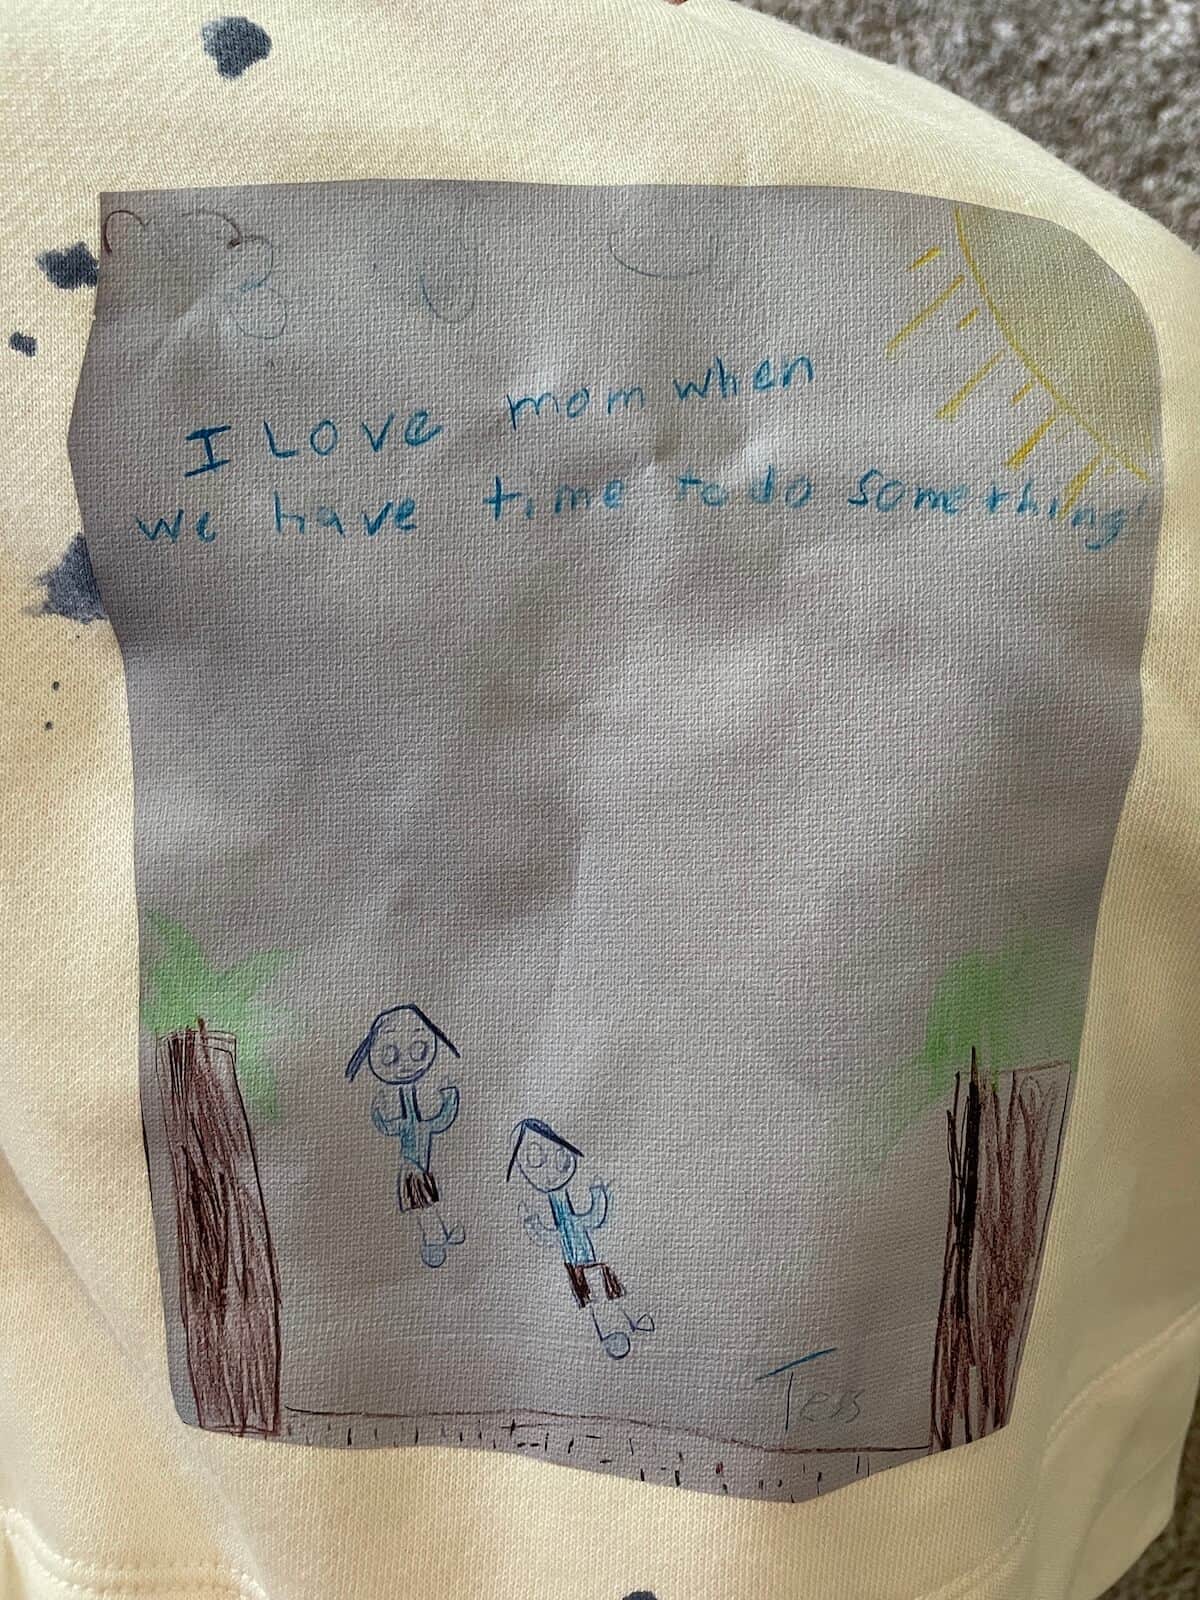 I Love mom when
we have time to do something!
Tess